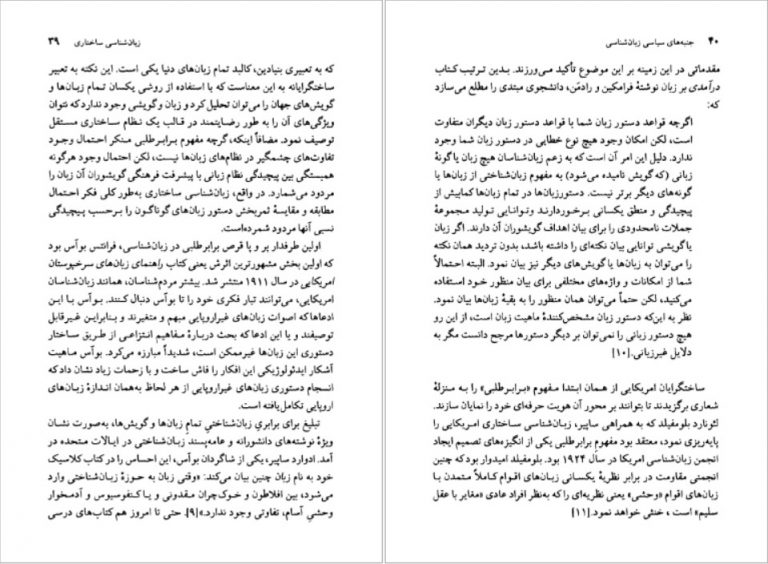 زبان‌شناسی ساختاری ۳۹
که به تعبیری بنیادین، کالبد تمام زبان‌های دنیا یکی است. این نکته به تعبیر
ساختگرایانه به این معناست که با استفاده از روشی یکسان تمام زبان‌ها و
گویش‌های جهان را می‌توان تحلیل کرد و زبان و گویشی وجود ندارد که نتوان
ویژگی‌های آن را به طور رضایتمند در قالب یک نظام ساختاری مستقل
توصیف نمود. مضافاً اینکه، گرچه مفهوم برابرطلبی منکر احتمال وجود
تفاوت‌های چشمگیر در نظام‌های زبان‌ها نیست، لکن احتمال وجود هرگونه
همبستگی بین پیچیدگی نظام زبانی با پیشرفت فرهنگی گویشوران آن زبان را
مردود می‌شمارد. در واقع، زبان‌شناسی ساختاری به‌طور کلی فکر احتمال
مطابقه و مقایسهٔ ثمربخش دستور زبان‌های گوناگون را برحسب پیچیدگی
نسبی آنها مردود شمرده‌است.
اولین طرفدار پر و پا قرص برابرطلبی در زبان‌شناسی، فرانتس بوآس بود
که اولین بخش مشهورترین اثرش یعنی کتاب راهنمای زبان‌های سرخپوستان
امریکایی در سال ۱۹۱۱ منتشر شد. بیشتر مردم‌شناسان، همانند زبان‌شناسان
امریکایی، می‌توانند تبار فکری خود را تا بوآس دنبال کنند. بوآس با این
ادعاها که اصوات زبان‌های غیراروپایی مبهم و متغیرند و بنابراین غیرقابل
توصیفند و یا این ادعا که بحث دربارهٔ مفاهیم انتزاعی از طریق ساختار
دستوری این زبان‌ها غیرممکن است، شدیداً مبارزه می‌کرد. بوآس ماهیت
آشکار ایدئولوژیکی این افکار را فاش ساخت و با زحمات زیاد نشان داد که
انسجام دستوری زبان‌های غیراروپایی از هر لحاظ به‌همان اندازهٔ زبان‌های
اروپایی تکامل‌یافته است.
تبلیغ برای برابریِ زبان‌شناختیِ تمامِ زبان‌ها و گویش‌ها، به‌صورت نشان
ویژهٔ نوشته‌های دانشورانه و عامه‌پسند زبان‌شناختی در ایالات متحده در
آمد. ادوارد ساپیر، یکی از شاگردان بوآس، این احساس را در کتاب کلاسیک
خود به نام زبان چنین بیان می‌کند: «وقتی زبان به حوزهٔ زبان‌شناختی وارد
می‌شود، بین افلاطون و خوک‌چران مقدونی و یا کنفوسیوس و آدمخوار
وحشیِ آسام، تفاوتی وجود ندارد.»[۹]. حتی تا امروز هم کتاب‌های درسی
۴۰ جنبه‌های سیاسی زبان‌شناسی
مقدماتی در این زمینه بر این موضوع تأکید می‌ورزند. بدین ترتیب کتاب
درآمدی بر زبان نوشتهٔ فرامکین و رادمَن، دانشجوی مبتدی را مطلع می‌سازد
که:
اگرچه قواعد دستور زبان شما با قواعد دستور زبان دیگران متفاوت
است، لکن امکان وجود هیچ نوع خطایی در دستور زبان شما وجود
ندارد. دلیل این امر آن است که به زعم زبان‌شناسان هیچ زبان یا گونهٔ
زبانی (که گویش نامیده می‌شود) به مفهوم زبان‌شناختی از زبان‌ها یا
گونه‌های دیگر برتر نیست. دستورزبان‌ها در تمام زبان‌ها کمابیش از
پیچیدگی و منطق یکسانی برخوردارند و توانایی تولید مجموعهٔ
جملات نامحدودی را برای بیان اهداف گویشوران آن دارند. اگر زبان
یا گویشی توانایی بیان نکته‌ای را داشته باشد، بدون تردید همان نکته
را می‌توان به زبان‌ها یا گویش‌های دیگر نیز بیان نمود. البته احتمالاً
شما از امکانات و واژه‌های مختلفی برای بیان منظور خود استفاده
می‌کنید، لکن حتماً می‌توان همان منظور را به بقیهٔ زبان‌ها بیان نمود.
نظر به این‌که دستور زبان مشخص‌کنندهٔ ماهیت زبان است، از این رو
هیچ دستور زبانی را نمی‌توان بر دیگر دستورها مرجح دانست مگر به
دلایل غیرزبانی.[۱۰]
ساختگرایان امریکایی از همان ابتدا مفهوم «برابرطلبی» را به منزلهٔ
شعاری برگزیدند تا بتوانند بر محور آن هویت حرفه‌ای خود را نمایان سازند.
لئونارد بلومفیلد که به همراهی ساپیر، زبان‌شناسی ساختاری امریکایی را
پایه‌ریزی نمود، معتقد بود مفهوم برابرطلبی یکی از انگیزه‌های تصمیم ایجاد
انجمن زبان‌شناسی امریکا در سال ۱۹۲۴ بود. بلومفیلد امیدوار بود که چنین
انجمنی مقاومت در برابر نظریهٔ یکسانی زبان‌های اقوام کاملاً متمدن با
زبان‌های اقوام «وحشی» یعنی نظریه‌ای را که به‌نظر افراد عادی «مغایر با عقل
سلیم» است ، خنثی خواهد نمود.[۱۱]